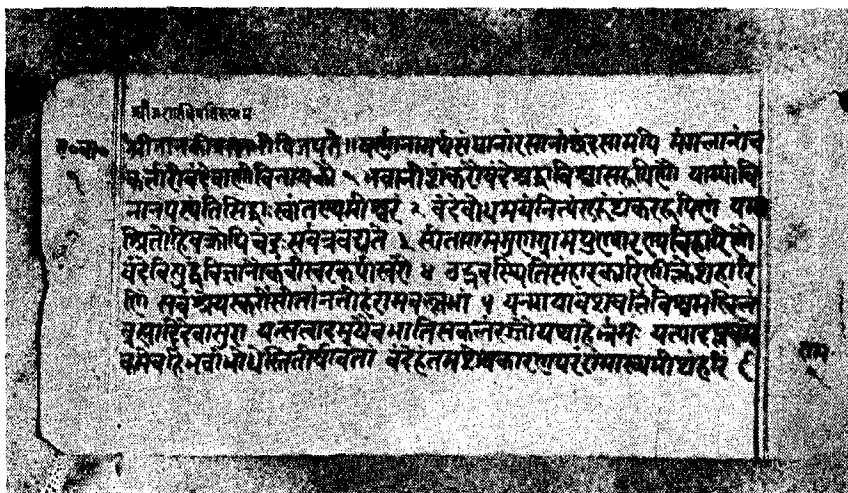 श्रीजानकीवल्लभोविजयते॥ वर्णानामर्थसंघानांरसानांछंदसामपि मंगलानांच
कर्त्तारौवंदेवाणीविनायकौ १ भवानीशंकरौवंदेश्रद्धाविश्वासरूपिणौ याभ्यांवि
नानपस्यंतिसिद्धाःस्वांतस्थमीश्वरं २ वंदेबोधमयंनित्यंगुरुंशंकररूपिणं यमा
श्रितोहिवक्रोपिचंद्रःसर्वत्रवंद्यते ३ सीतारामगुणग्रामपुण्यारण्यविहारिणौ
वंदेविशुद्धविज्ञानौकवीस्वरकपीस्वरौ ४ उद्भवस्थितिसंहारकारिणींक्लेशहारि
णीं सर्वश्रेयस्करींसीतांनतोहंरामवल्लभां ५ यन्मायावशवर्तिविश्वमखिलं
ब्रह्मादिदेवासुरा यत्सत्वादमृषैवभातिसकलंरज्जौयथाहेर्भ्रमः यत्पादप्लव
वमेवहिभवांभोधेस्तितीर्षावतां वंदेहंतमशेषकारणपरंरामाख्यमीशंहरिं ६
राम